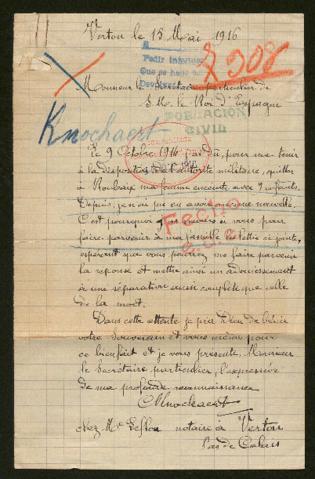 Verton le 15 Mai 1916
Pedir informe
Que se haga
308
Monsieur le Secrétaire particulier de
S. M. le Roi d'Espagne
POBLACION
CIVIL
Knochaert
Le 9 Octobre 1914 j'ai dû, pour me tenir
à la disposition de l'autorité militaire, quitter
à Roubaix ma femme enceinte avec 9 enfants.
Depuis, je n'ai pu en avoir aucune nouvelle
C'est pourquoi j'ai recours à vous pour
faire parvenir à ma famille la lettre ci jointe,
espérant que vous pourrez me faire parvenir
la réponse et mettre ainsi un adoucissement
à une séparation aussi complète que celle
de la mort.
Fecho
Dans cette attente je prie Dieu de bénir
votre Souverain et vous même pour
ce bienfait et je vous présente, Monsieur
le Secrétaire particulier, l'expression
de ma profonde reconnaissance
CKnochaert
chez Me Leflon notaire à Verton
Pas de Calais